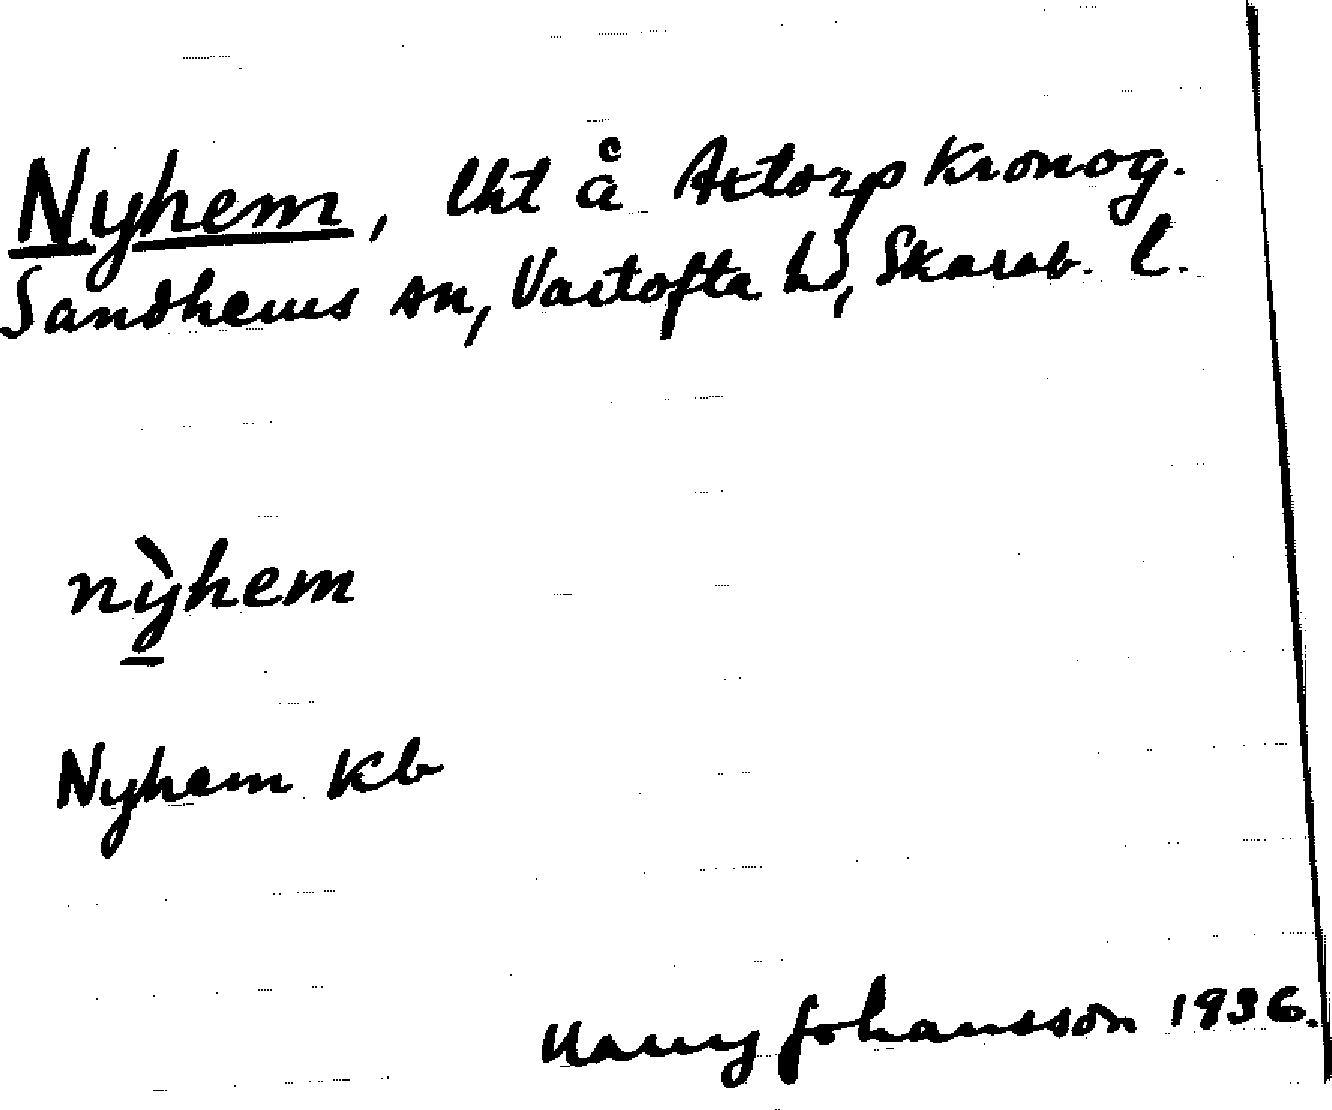 Nyhem, lht å Axtorp Kronog.
Sandhems sn, Vartofta hd, Skarab. l.
nỳhem
Nyhem Kb
Harry Johansson 1936.